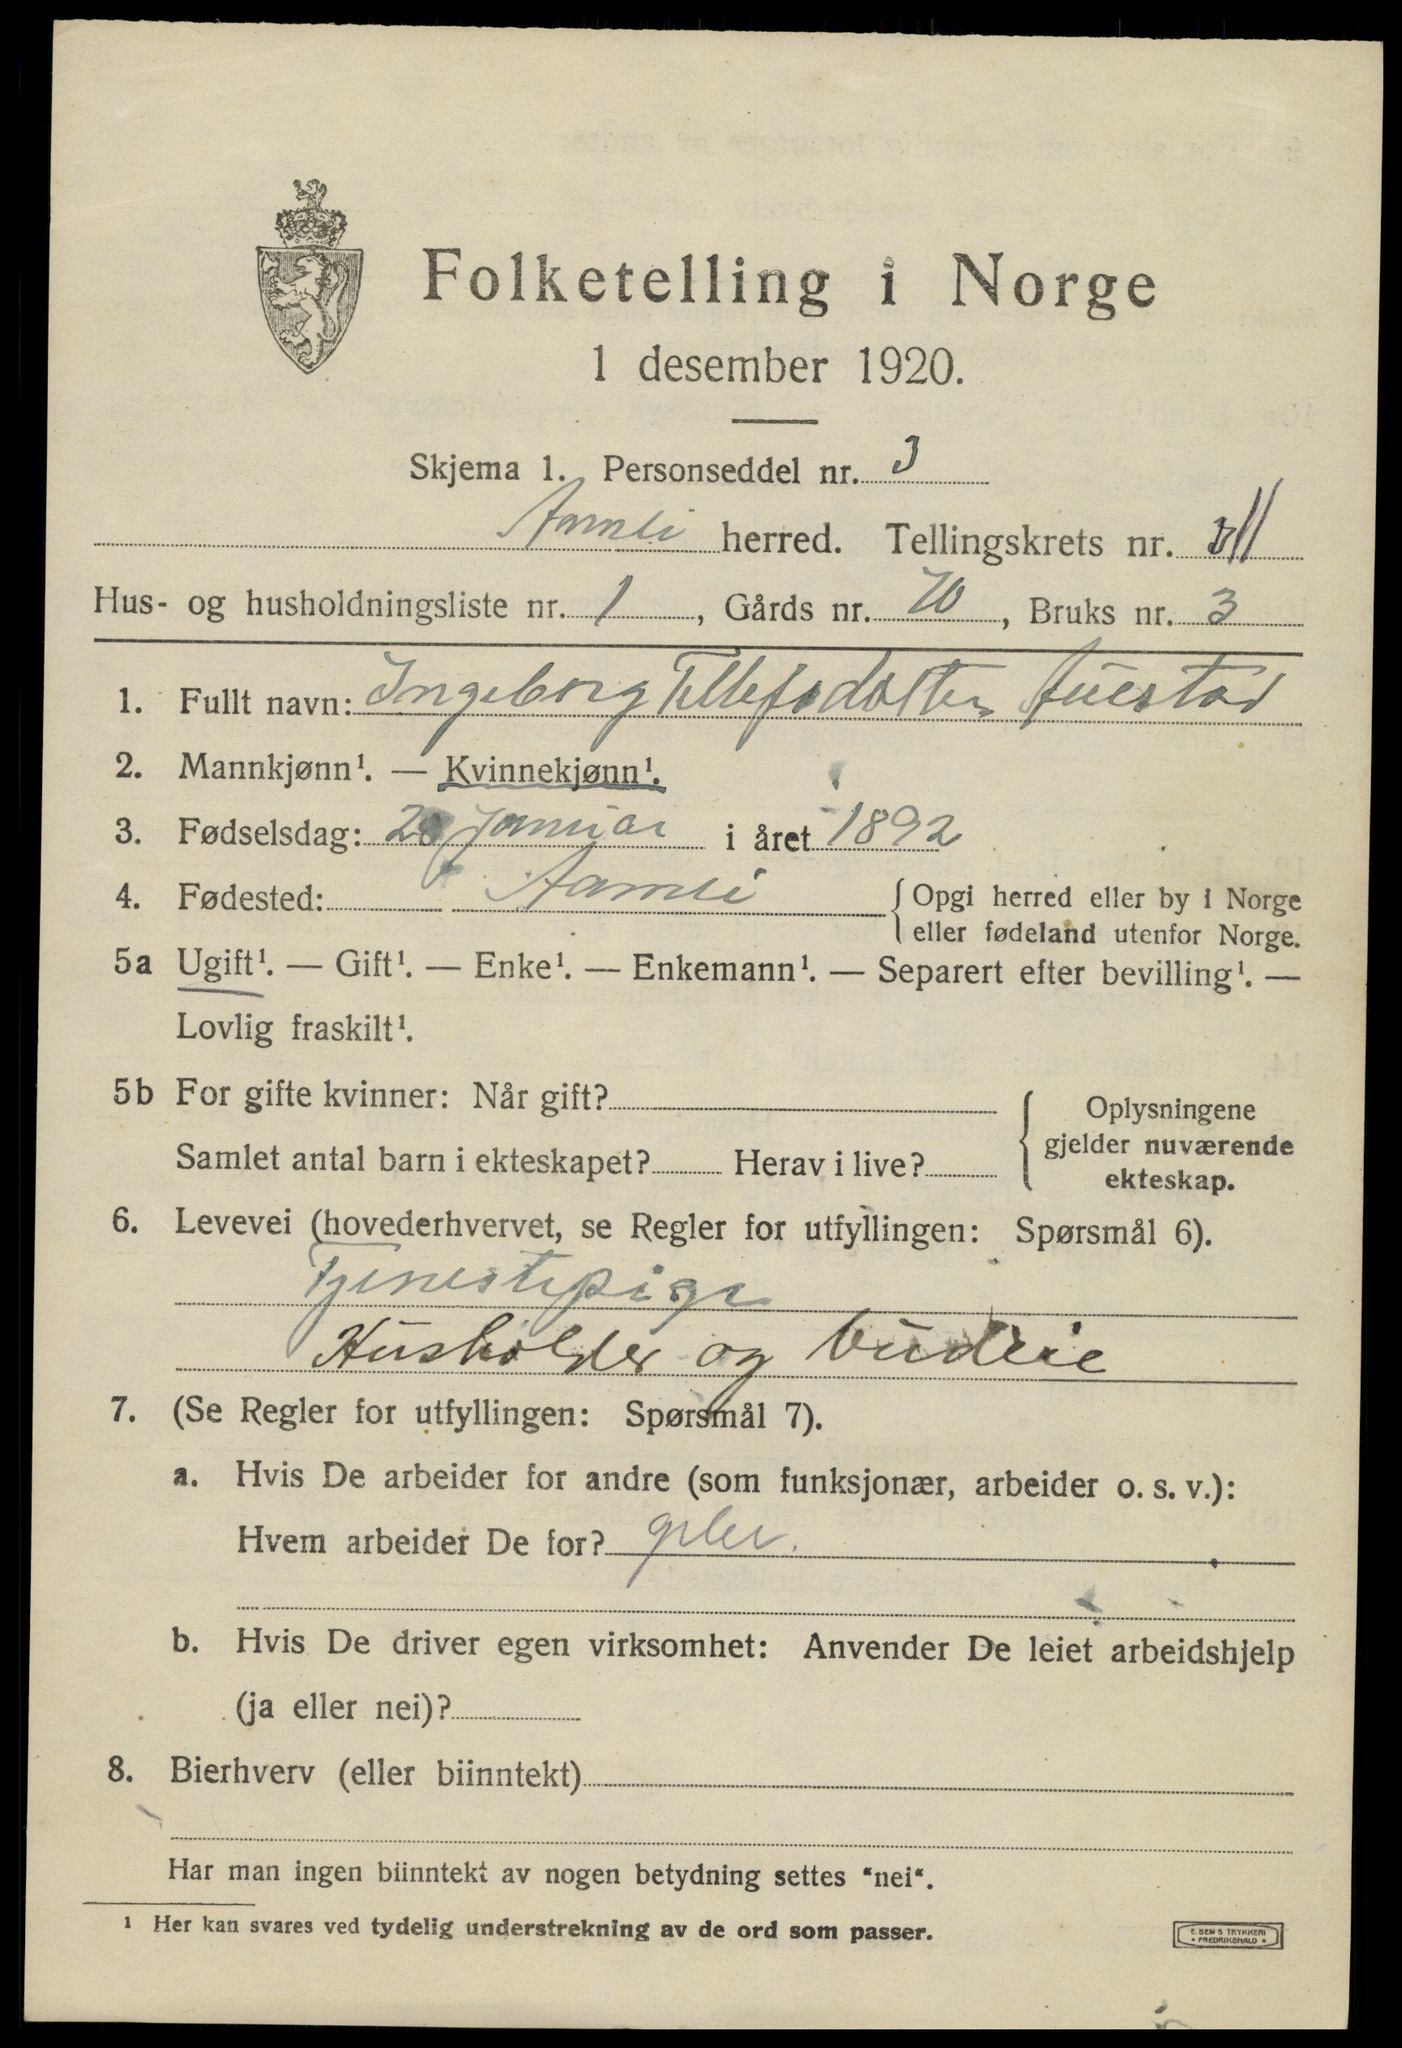 Folketelling i Norge
1 desember 1920.
Skjema 1. Personseddel nr. 3
Aamli herred. Tellingskrets nr. 11
Hus- og husholdningsliste nr. 1, Gårds nr. 70, Bruks nr. 3
1. Fullt navn: Ingeborg Tellefsdatter
2. Mannkjønn¹. — Kvinnekjønn¹.
3. Fødselsdag: 28 Januar i året 1892
4. Fødested: Aamli { Opgi herred eller by i Norge
eller fødeland utenfor Norge.
5a Ugift¹. — Gift¹. — Enke¹. — Enkemann¹. — Separert efter bevilling¹. —
Lovlig fraskilt¹.
5b For gifte kvinner: Når gift?
Samlet antal barn i ekteskapet? Herav i live?
{ Oplysningene
gjelder nuværende
ekteskap.
6. Levevei (hovederhvervet, se Regler for utfyllingen: Spørsmål 6).
Tjenestepige
Husholder og budeie
7. (Se Regler for utfyllingen: Spørsmål 7).
a. Hvis De arbeider for andre (som funksjonær, arbeider o. s. v.):
Hvem arbeider De for?
b. Hvis De driver egen virksomhet: Anvender De leiet arbeidshjelp
(ja eller nei)?
8. Bierhverv (eller biinntekt)
Har man ingen biinntekt av nogen betydning settes "nei".
¹ Her kan svares ved tydelig understrekning av de ord som passer.
E. SEM'S TRYKKERI
• FREDRIKSHALD •